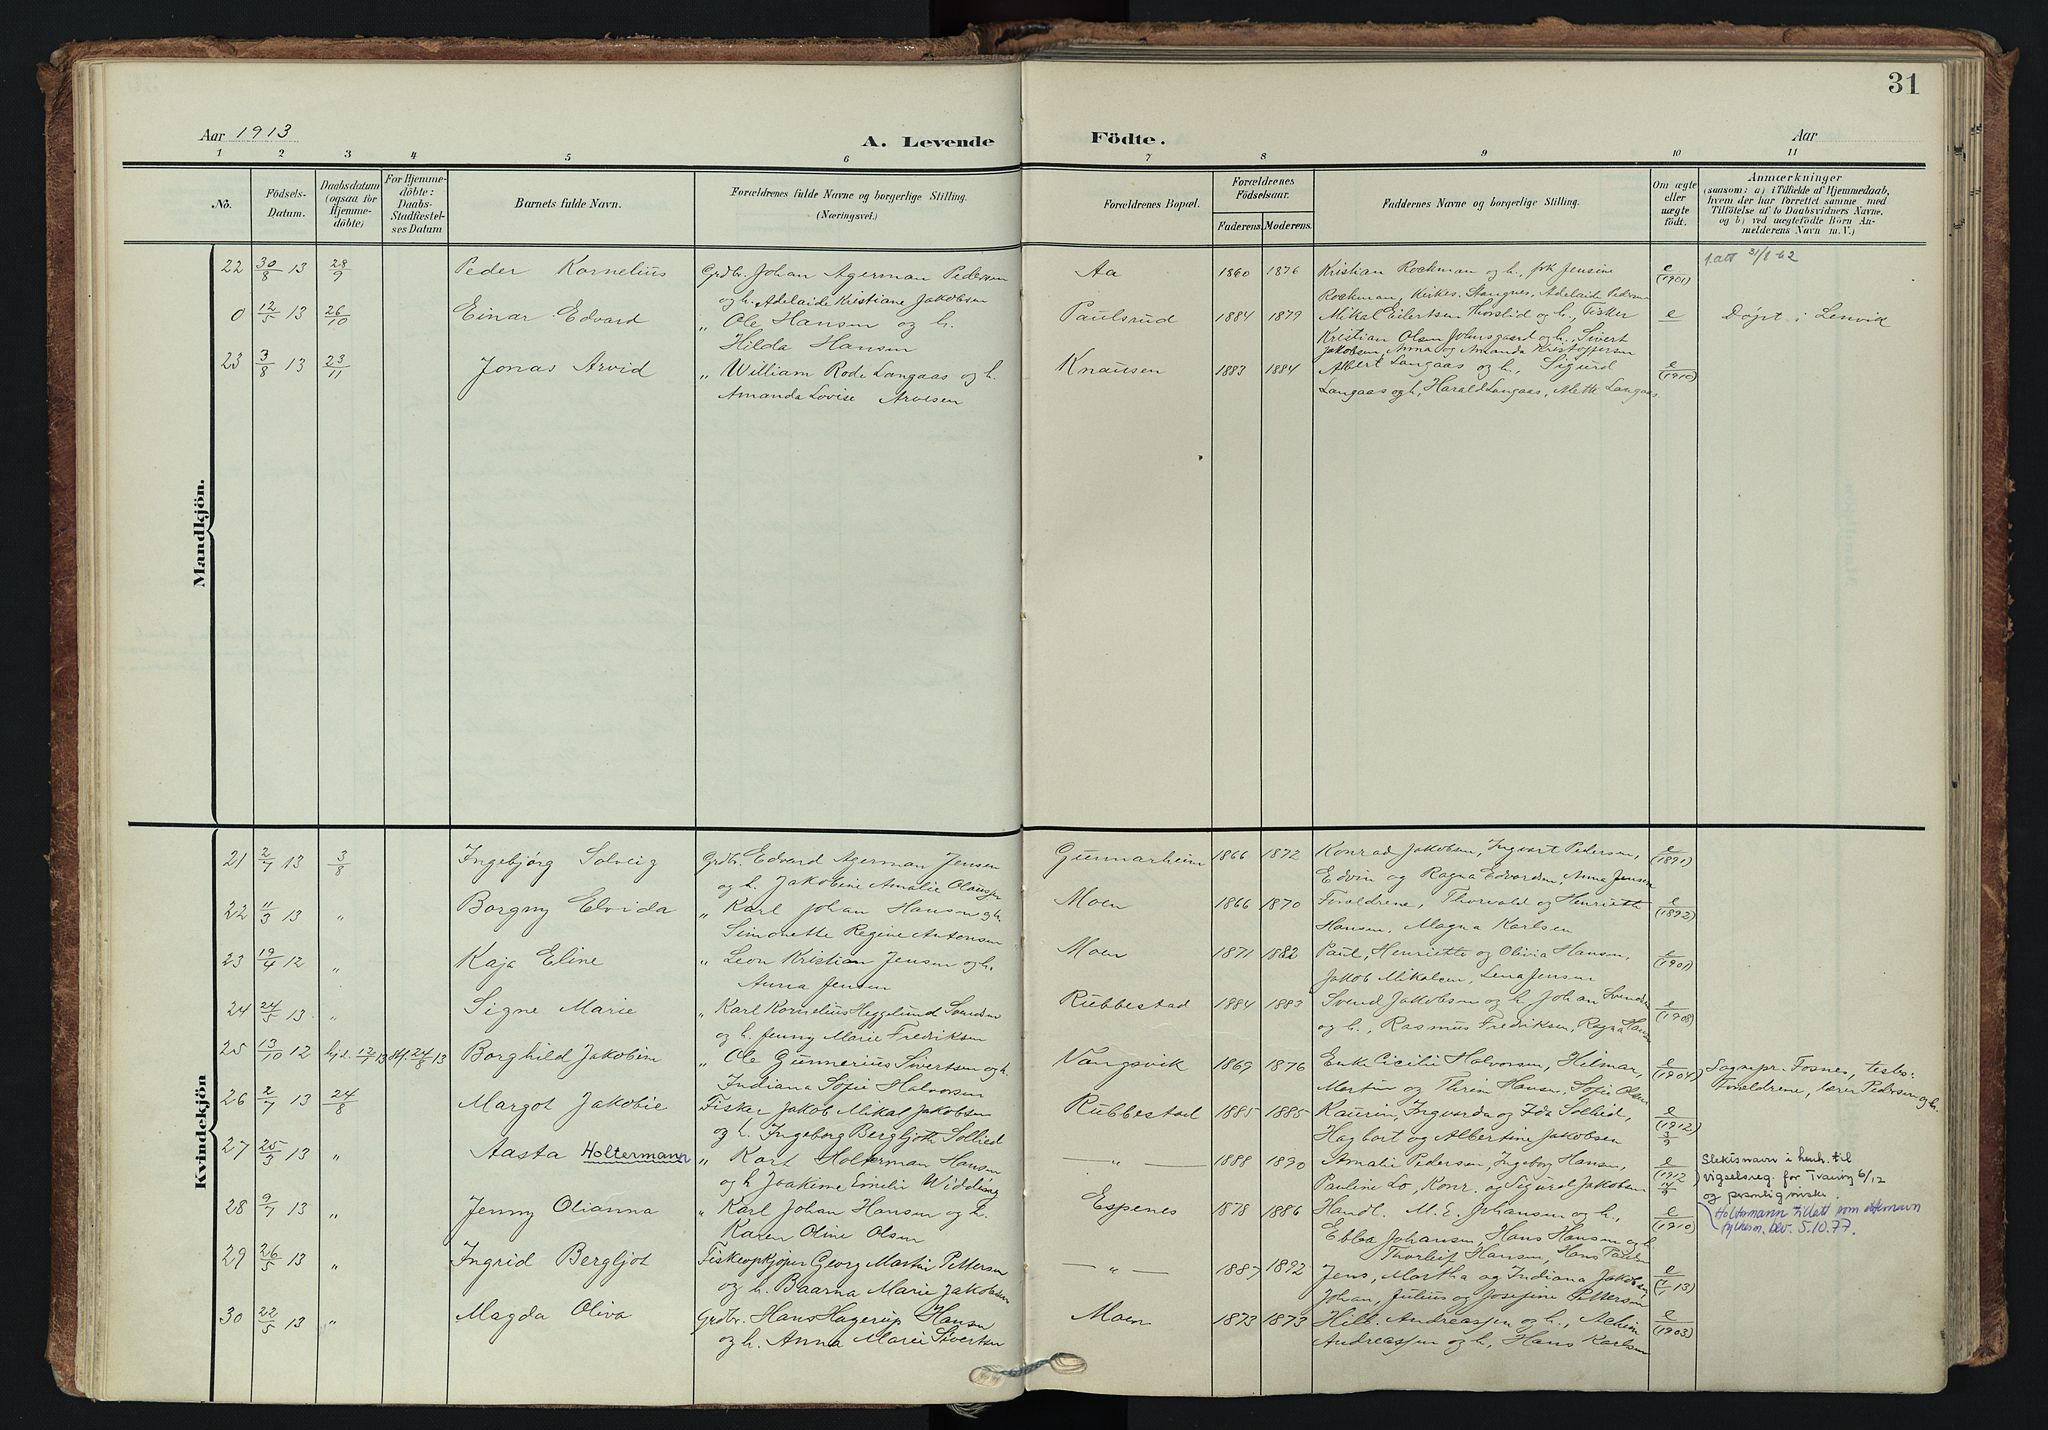 31
Aar 1913
A. Levende Födte.
Aar
1 2 3 4 5 6 7 8 9 10 11
No.
Födsels-Datum.
Daabsdatum (ogsaa for Hjemme-döbte)
For Hjemme-döbte: Daabs-Stadfæstel-ses Datum
Barnets fulde Navn.
Forældrenes fulde Navne og borgerlige Stilling. (Næringsvei.)
Forældrenes Bopæl.
Forældrenes Födselsaar.
Faderens. Moderens.
Faddernes Navne og borgerlige Stilling.
Om ægte eller uægte födt.
Anmærkninger
(saasom: a) i Tilfælde af Hjemmedaab, hvem der har forrettet samme, med Tilföielse af to Daabsvidners Navne, og b) ved uægtefödte Börn An-melderens Navn m. V.)
Mandkjön.
22 30/8 13 28/9 Peder Kornelius Grdbr. Johan Agerman Pedersen Aa 1860 1876 Kristian Rochman og h., frk Jensine e (1901) 31/8 62
og h. Adelaide Kristiane Jakobsen Rochman, Kirkes. Stangnes, Adelaide Peders
0 12/5 13 26/10 Einar Edvard " Ole Hansen og h. Paulsrud 1884 1879 Mikal Eilertsen Thorslid og h., Fisker e Døpt i Lenvik
Hilda Hansen Kristian Olsen Johnsgaard og h., Sivert
Jakobsen, Anna og Amanda Kristoffersen
23 3/8 13 23/11 Jonas Arvid " William Rode Langaas og h. Knausen 1883 1884 Albert Langaas og h., Sigurd e (1910)
Amanda Lovise Arvesen Langaas og h, Harald Langaas, Mette Langaas.
Kvindekjön
21 2/7 13 3/8 Ingebjørg Solveig Grdbr. Edvard Agerman Jensen Gunnarheim 1866 1872 Konrad Jakobsen, Ingvart Pedersen, e (1891)
og h. Jakobine Amalie Olaussen Edvin og Ragna Edvardsen, Anna Jensen
22 11/3 13 " Borgny Elvida " Karl Johan Hansen og h. Moen 1866 1870 Forældrene, Thorvald og Henriette e (1892)
Simonette Regine Antonsen Hansen, Magna Karlsen
23 19/4 12 " Kaja Eline " Leon Kristian Jensen og h. Moen 1871 1882 Paul, Henriette og Olivia Hansen, e (1901)
Anna Jensen Jakob Mikalsen, Lena Jensen
24 24/5 13 " Signe Marie " Karl Kornelius Heggelund Svendsen Rubbestad 1884 1883 Svend Jakobsen og h. Johan Svendsen e (1908)
og h. Jenny Marie Fredriksen og h., Rasmus Fredriksen, Ragna Hansen
25 13/10 12 hj.d. 17/7 13 stf. 24/8 13 Borghild Jakobine " Ole Gunnerius Sivertsen og h. Vangsvik 1869 1876 Enke Cicilie Halvorsen, Hilmar, e (1904) Sognepr. Fosnes, testes:
Indiana Sofie Halvorsen Martin og Thrine Hansen, Sofie Olsen Forældrene, lærer Pedersen og h.
26 2/7 13 24/8 Margot Jakobie Fisker Jakob Mikal Jakobsen Rubbestad 1885 1885 Laurin, Ingvarda og Ida Sollied, e (1912)
og h. Ingeborg Bergljoth Sollied Hagbart og Albertine Jakobsen
27 25/3 13 " Aasta Holtermann " Karl Holterman Hansen — " — 1888 1890 Amalie Pedersen, Ingeborg Hansen, e (1912 Slektsnavn i henh. til
og h Joakime Emelie Widding Pauline Lo, Konr. og Sigurd Jakobsen vigselsreg. for Tranøy 6/12
og personlig ønske.
28 9/7 13 " Jenny Olianna " Karl Johan Hansen og h. Espenes 1878 1886 Handl. M. E. Johansen og h., e (1910) Holtermann tillatt som etternavn
Karen Oline Olsen Ebba Johansen, Hans Hansen og h. fylkesm. bev. 5.10.77.
Thorleif Hansen, Hans Paulsen
29 26/5 13 " Ingrid Bergljot Fiskeopkjøper Georg Martin Pettersen — " — 1887 1892 Jens, Martha og Indiana Jakobsen e
og h. Baarna Marie Jakobsen Johan, Julius og Josefine Pettersen
30 22/5 13 " Magda Oliva Grdbr. Hans Hagerup Hansen Moen 1873 1873 Hilb. Andreassen og h., Achim e (1903)
og h. Anna Marie Sivertsen Andreassen og h., Hans Karlsen